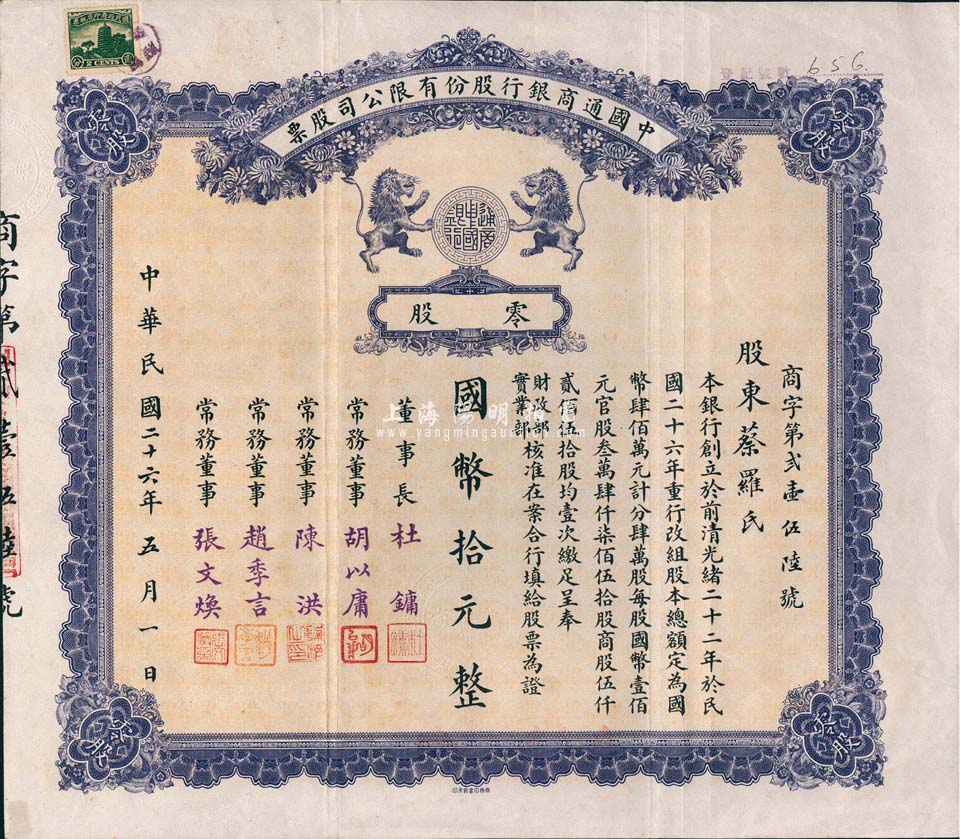 2 CENTS
登記號數 656.
中國通商銀行股份有限公司股票
零股
零股
中國通商銀行
零股
商字第弍壹伍陸號
股東蔡羅氏
本銀行創立於前清光緒二十二年於民
國二十六年重行改組股本總額定為國
幣肆佰萬元計分肆萬股每股國幣壹佰
元官股叁萬肆仟柒佰伍拾股商股伍仟
貳佰伍拾股均壹次繳足呈奉
財政部
實業部
核准在案合行填給股票為證
國幣拾元整
董事長 杜鏞
常務董事 胡以庸
常務董事 陳洪
常務董事 趙季言
常務董事 張文煥
中華民國二十六年五月一日
商字第貳壹伍陸號
零股
零股
上海陽明拍賣
www.yangmingauction.com